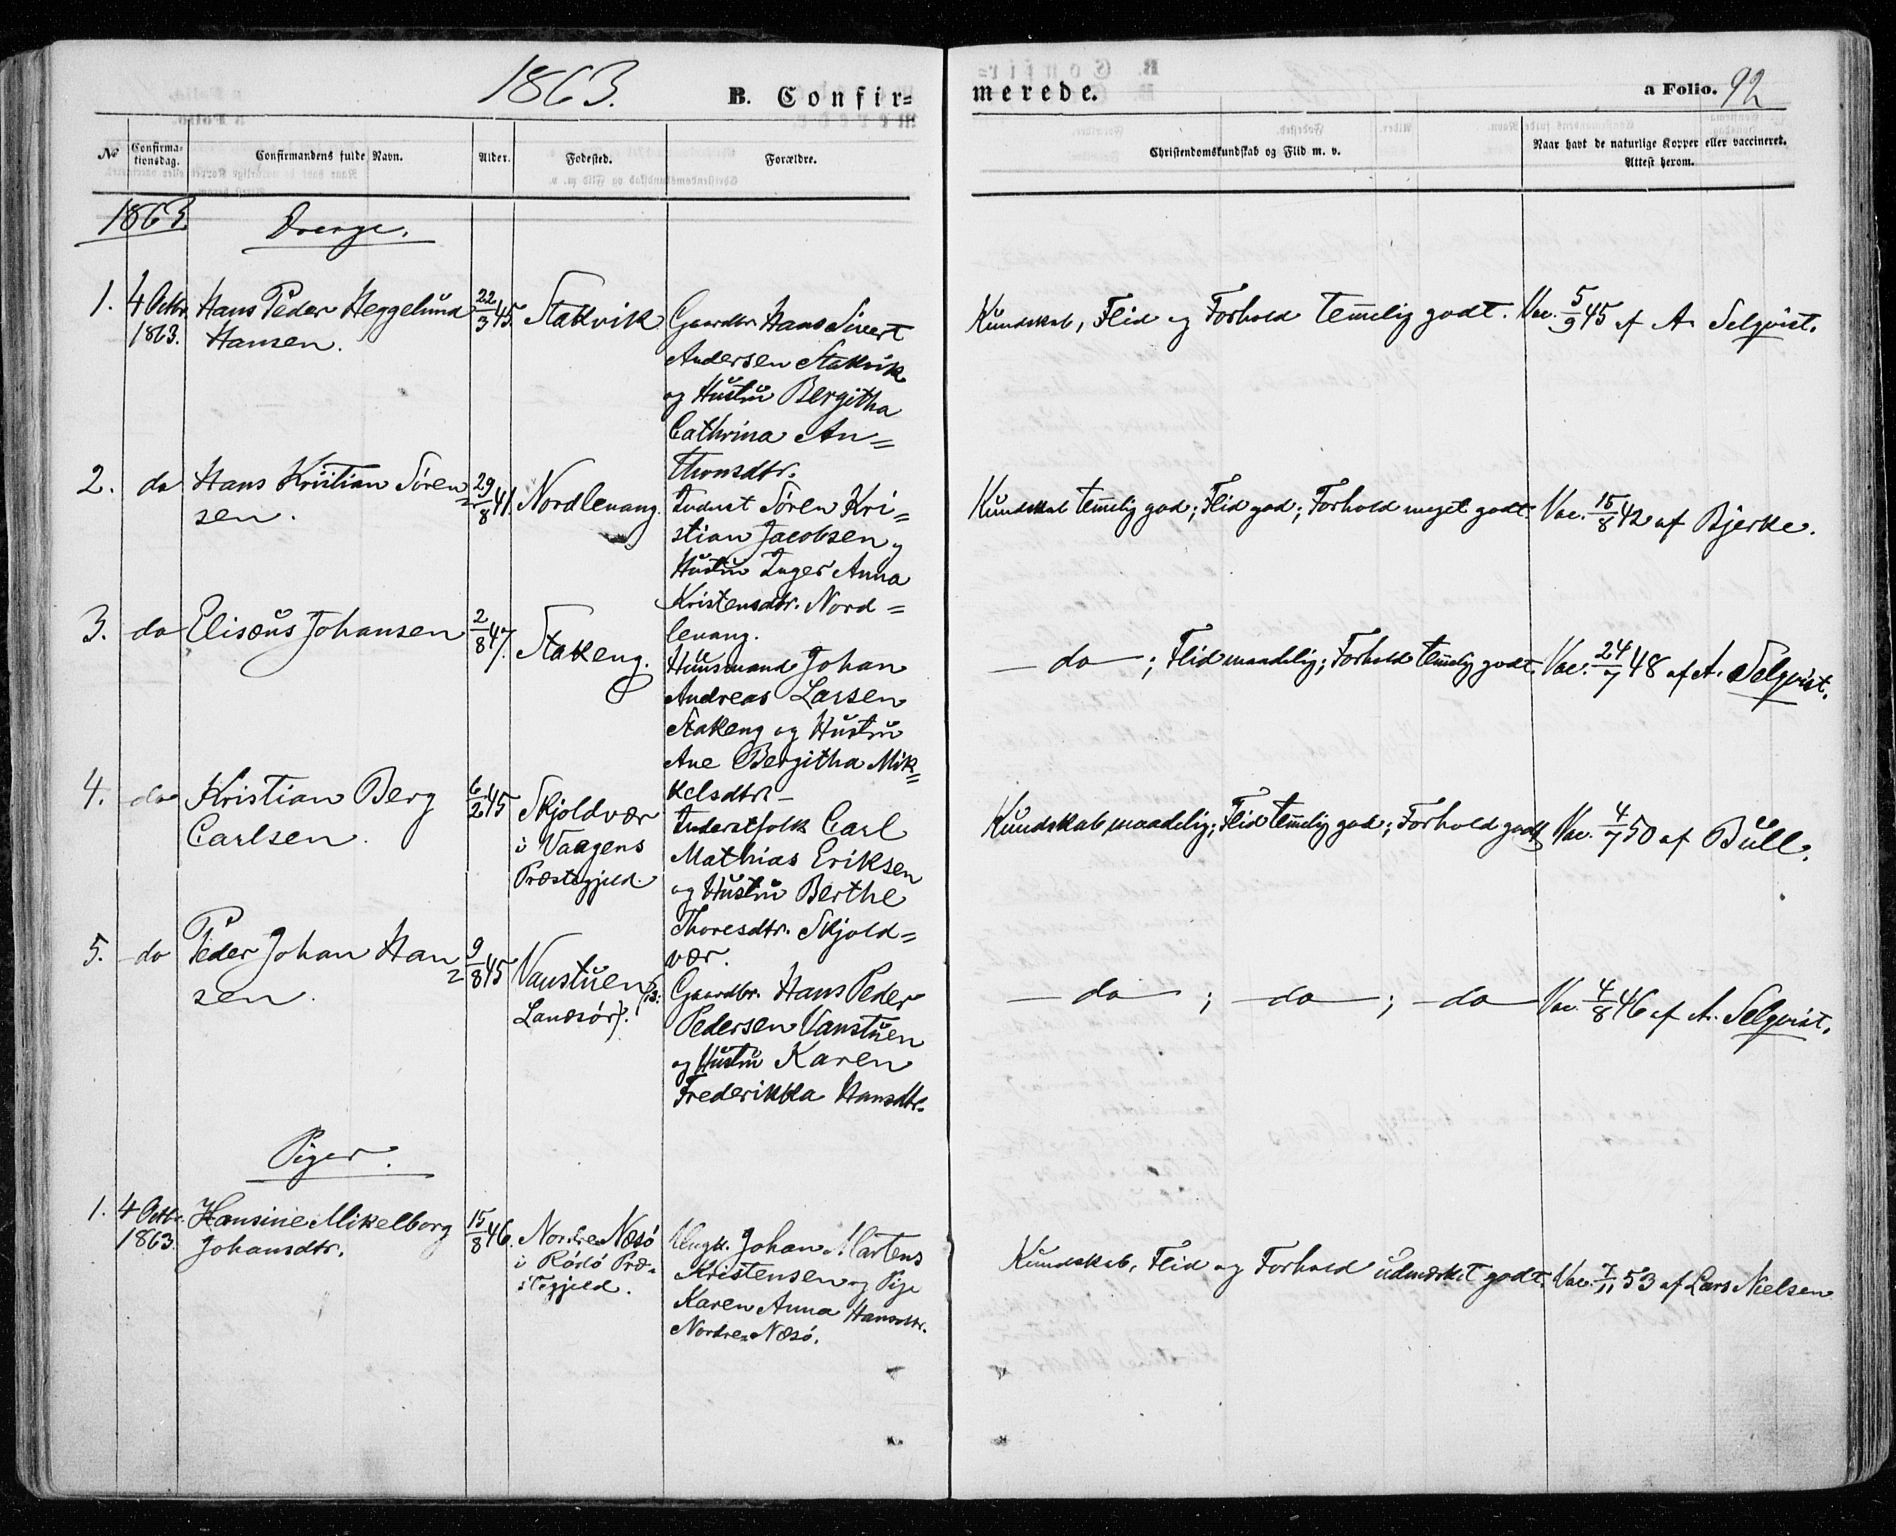 1863.
B. Confir=
merede.
a Folio. 92
No
Confirma-
tionsdag.
Confirmandens fulde Navn.
Alder.
Fødested.
Forældre.
Christendomskundskab og Flid m. v.
Naar havt de naturlige Kopper eller vaccineret.
Attest herom.
1863.
Drenge.
1. 4 Octbr. 1863. Hans Peder Heggelund 22/3 45. Stakvik
Hansen.
Gaardbr. Hans Sivert
Andersen Stakvik
og Hustru Bergitha
Cathrina An=
thonsdtr.
Kundskab, Flid og Forhold temelig godt. Vac. 5/9 45 af A. Selqvist.
2. do Hans Kristian Sören= 29/8 41. Nordlenang.
sen.
Inderst Sören Kri=
stian Jacobsen og
Hustru Inger Anna
Kristensdtr. Nord=
lenang.
Kundskab temelig god; Flid god; Forhold meget godt. Vac. 15/8 42 af Bjerke.
3. do Elisæus Johansen 2/8 47. Stakeng.
Huusmand Johan
Andreas Larsen
Stakeng og Hustru
Ane Bergitha Mik=
kelsdtr.
— do — ; Flid maadelig; Forhold temelig godt. Vac. 24/7 48 af A. Selqvist.
4. do Kristian Berg 6/2 45 Skjoldvær
Carlsen.
i Vaagens
Præstegjeld.
Inderstfolk Carl
Mathias Eriksen
og Hustru Berthe
Thoresdtr. Skjold=
vær.
Kundskab maadelig; Flid temelig god; Forhold godt Vac. 4/7 50 af Bull.
5. do Peder Johan Han= 9/8 45 Vanstuen
sen.
Lanesör).
Gaardbr. Hans Peder
Pedersen Vanstuen
og Hustru Karen
Frederikka Hansdtr.
— do — ; — do — ; — do — Vac. 4/8 46 af A. Selqvist.
Piger.
1. 4 Octbr. 1863. Hansine Mikelborg 15/8 46. Nordre Næsö
Johansdtr.
i Rödö Præ=
stegjeld.
Ungk. Johan Martens
Kristensen og Pige
Karen Anna Hansdtr.
Nordre=Næsö.
Kundskab, Flid og Forhold udmærket godt. Vac. 7/11 53 af Lars Nielsen